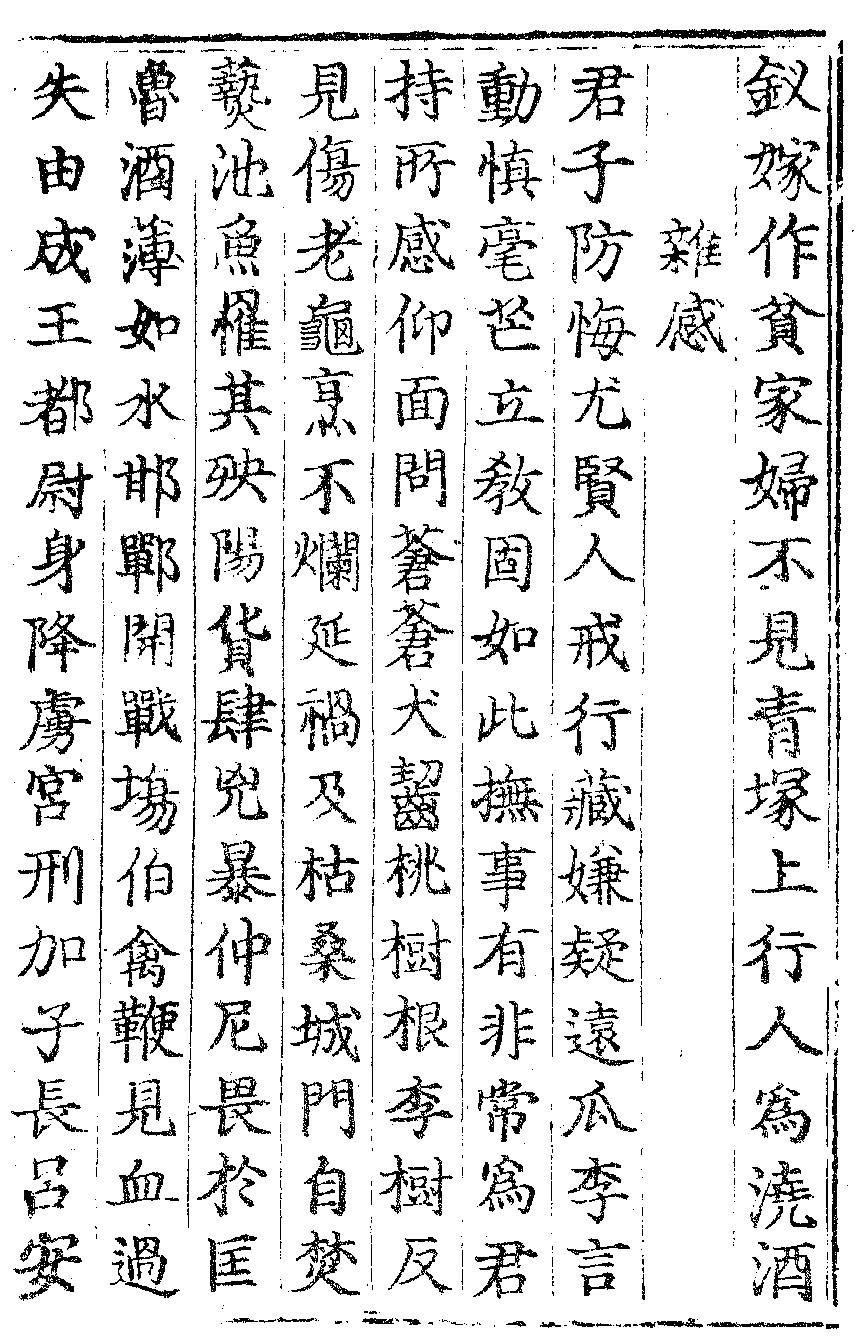 釵嫁作貧家婦不見青塚上行人為澆酒
雜感
君子防悔尤賢人戒行藏嫌疑遠瓜李言
動慎毫芒立教固如此撫事有非常為君
持所感仰面問蒼蒼犬齧桃樹根李樹反
見傷老龜烹不爛延禍及枯桑城門自焚
爇池魚罹其殃陽貨肆兇暴仲尼畏於匡
魯酒薄如水邯鄲開戰場伯禽鞭見血過
失由成王都尉身降虜宮刑加子長呂安